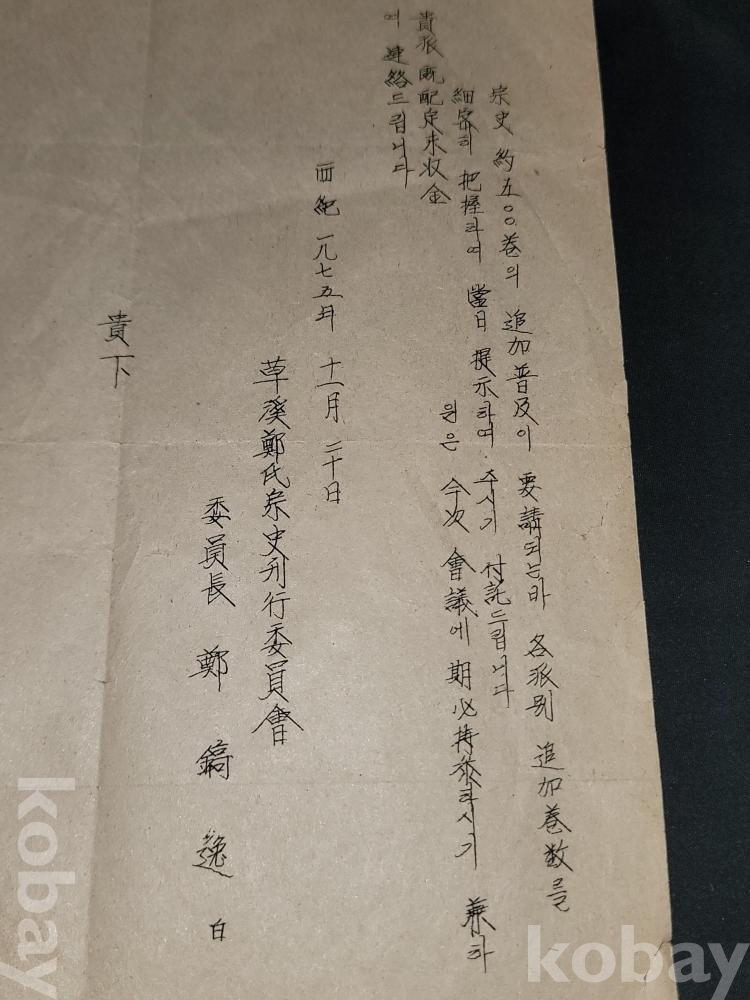 宗史 約五〇〇巻의 追加普及이 要請되는바 各派別 追加巻数를
細密히 把握하여 當日 提示하여 주시기 付託드립니다
貴派 旣配定未収金 원은 今次 會議에 期必持參하시기 兼하
여 連絡드립니다
西紀 一九七五年 十一月 二十日
草溪鄭氏宗史刊行委員會
委員長 鄭 鎬 逸 白
貴下
kobay
kobay